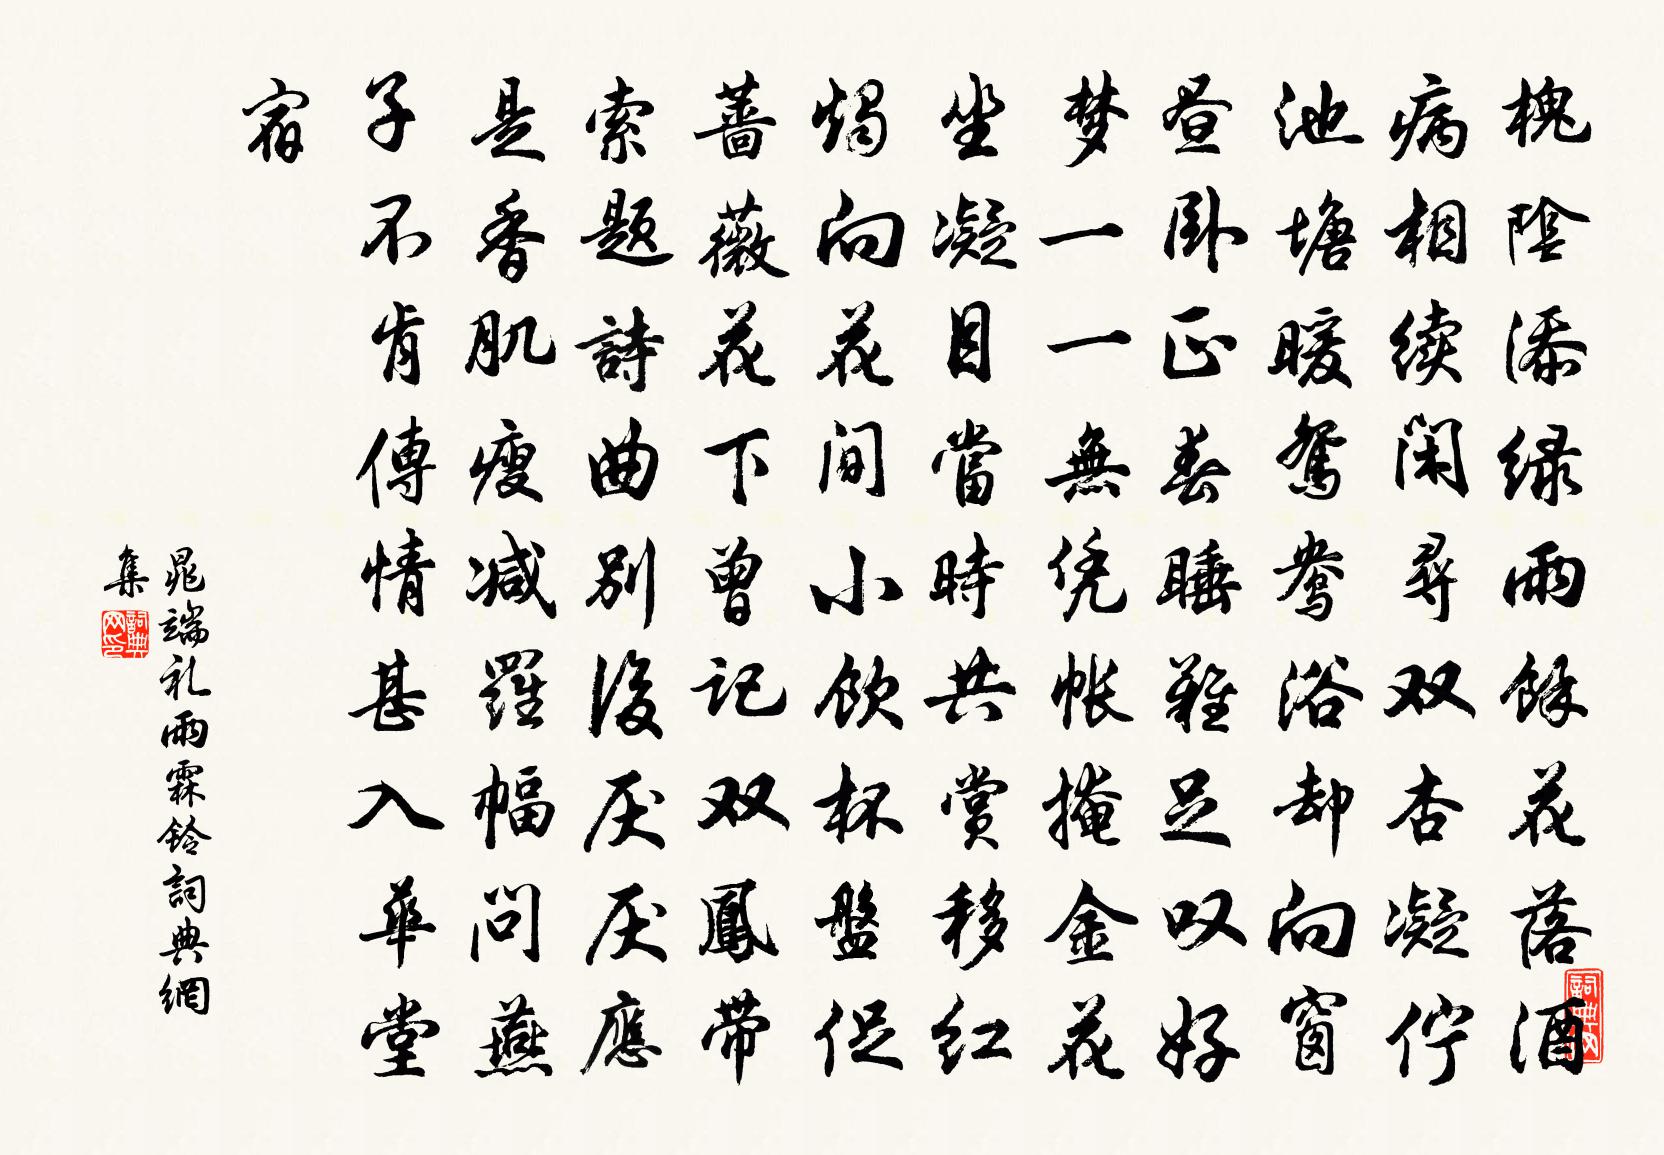 槐陰添绿雨餘花落酒
病相续闲尋双杏凝佇
池塘暖鴛鴦浴却向窗
昼卧正春睡難足叹好
梦一一無凭帐掩金花
坐凝目當時共赏移红
燭向花间小飲杯盤促
薔薇花下曾记双鳳带
索题詩曲别後厌厌應
是香肌瘦减羅幅问燕
子不肯傳情甚入華堂
宿
晁端礼雨霖鈴詞典網
集
詞典网印
詞典网